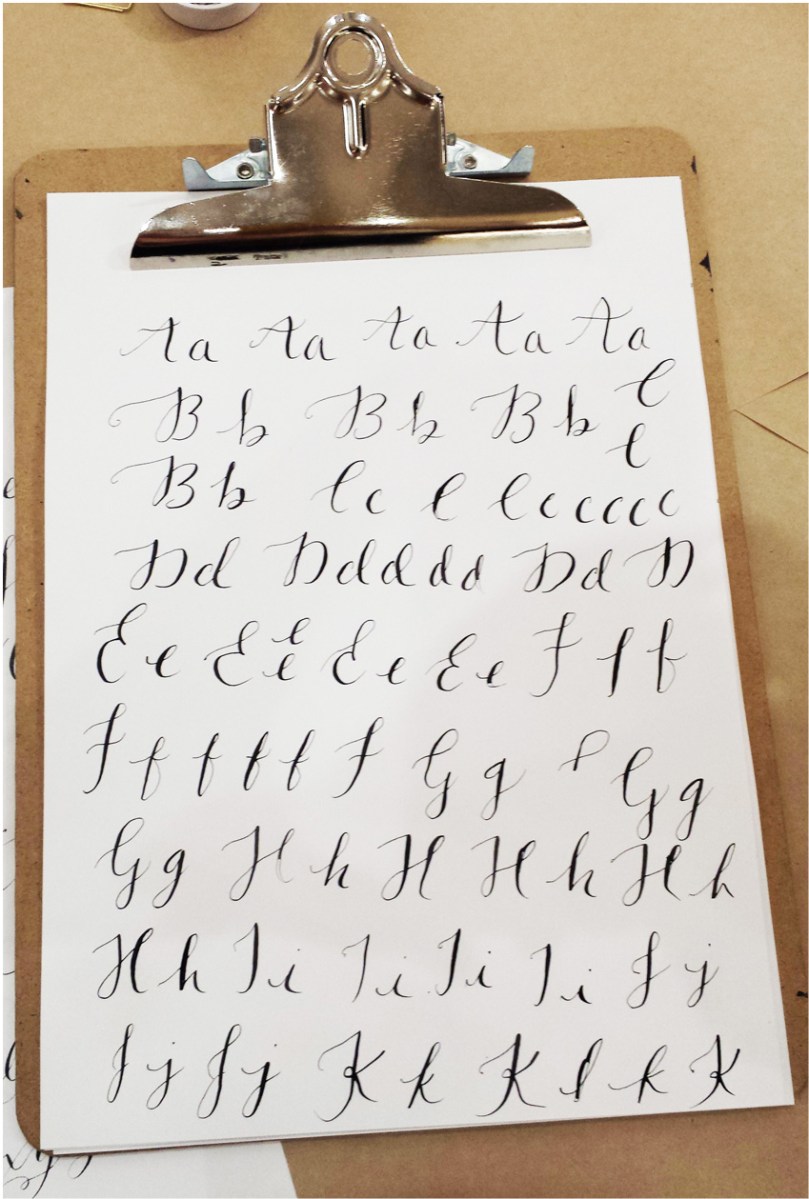 Aa Aa Aa Aa Aa
Bb Bb Bb C
Bb Cc C Cccccc
Dd Ddddd Dd D
Ee Eee Ee Ee F f f
F f f f f F G g G g
Gg H h H Hh Hh
Hh Ii Ii Ii Ii Jj
Jj Jj K k K k K